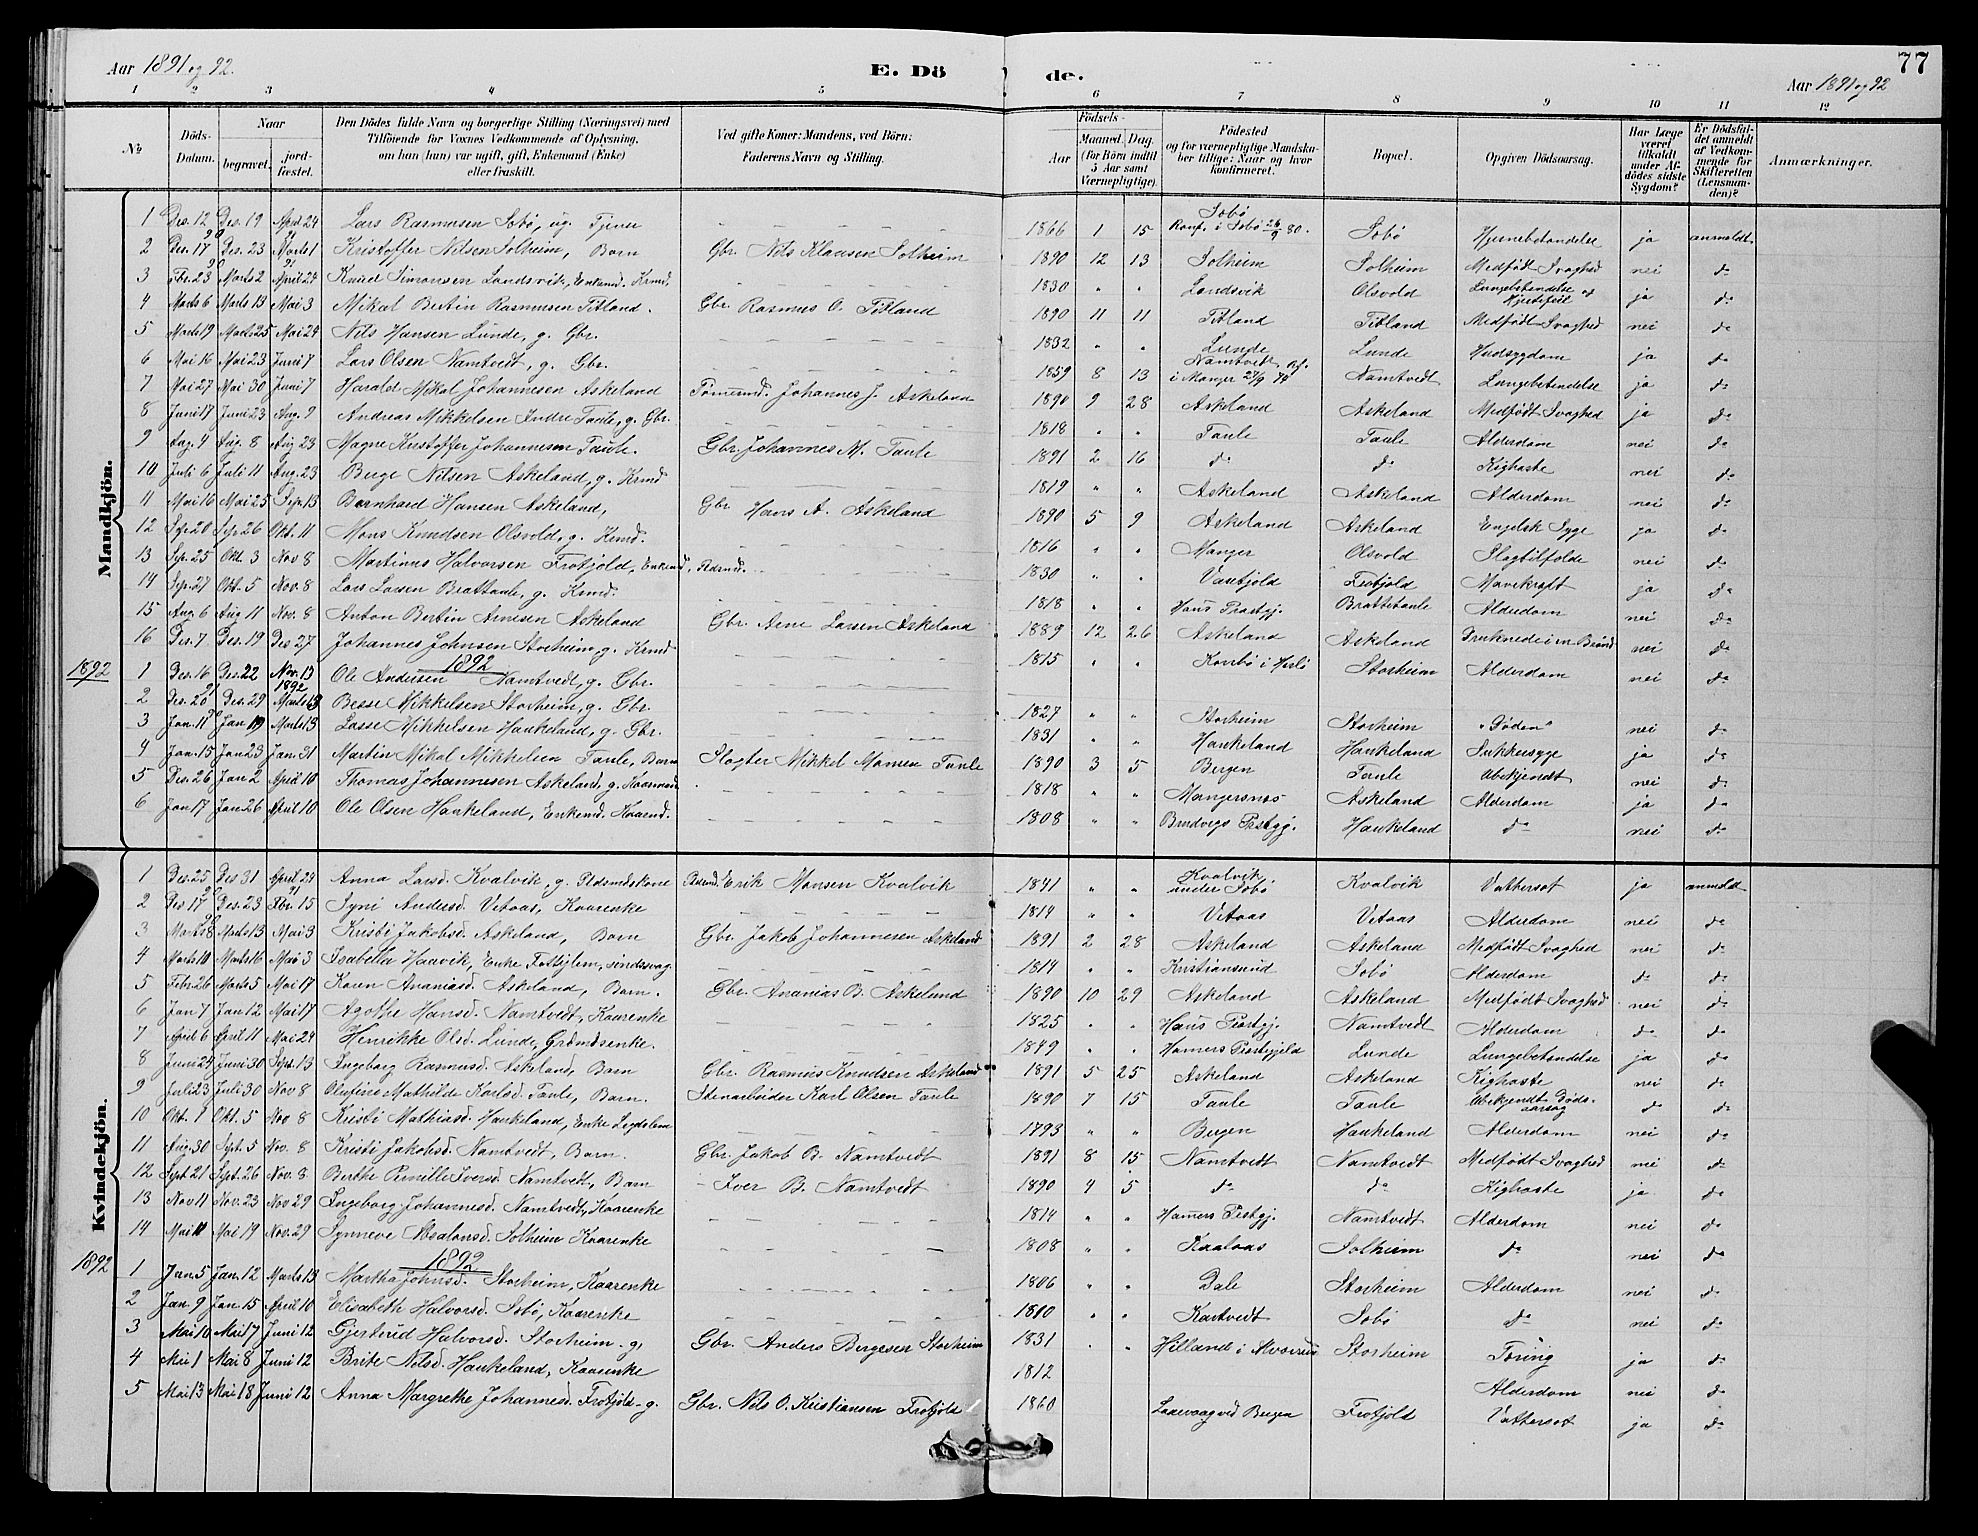 Aar 1891 og 92. E. Döde. Aar 1891 og 92 77
1 2 3 4 5 6 7 8 9 10 11 12
No Döds-Datum. Naar begravet. jord-fæstet. Den Dödes fulde Navn og borgerlige Stilling (Næringsvei) med Tilföiende for Voxnes Vedkommende af Oplysning, om han (hun) var ugift, gift, Enkemand (Enke) eller fraskilt. Ved gifte Koner: Mandens, ved Börn: Faderens Navn og Stilling. Födsels- Aar Maaned. Dag. (for Börn indtil 5 Aar samt Værnepligtige). Födested og for værnepligtige Mandska-ber tillige: Naar og hvor konfirmeret. Bopæl. Opgiven Dödsaarsag. Har Læge været tilkaldt under Af-dödes sidste Sygdom? Er Dödsfal-det anmeldt af Vedkom-mende for Skifteretten (Lensman-den)? Anmærkninger.
Mandkjön.
1 Des. 12 90 Des. 19 April 24 91 Lars Rasmusen Sobö, ug. Tjener 1866 1 15 Sobö Konf. i Sobö 26/9 80. Sobö Hjernebetendelse ja anmeldt
2 Des. 17 90 Des. 23 Marts 1 91 Kristoffer Nilsen Solheim, Barn Gbr. Nils Klausen Solheim 1890 12 13 Solheim Solheim Medfödt Svaghed nei do
3 Fbr. 23 Marts 2 April 24 Knud Simonsen Landsvik, Enkemd. Krmd. 1830 " " Landsvik Olsvold Lungebetendelse og Hjertefeil ja do
4 Marts 6 Marts 13 Mai 3 Mikal Bertin Rasmusen Titland. Gbr. Rasmus O. Titland 1890 11 11 Titland Titland Medfödt Svaghed nei do
5 Marts 19 Marts 25 Mai 24 Nils Hansen Lunde, g. Gbr. 1832 " " Lunde Lunde Hudsygdom ja do
6 Mai 16 Mai 23 Juni 7 Lars Olsen Namtvedt, g. Gbr. 1859 8 13 Namtvedt, kf. i Manger 27/9 74 Namtvedt Lungebetendelse ja do
7 Mai 27 Mai 30 Juni 7 Harald Mikal Johannesen Askeland Tömmermd. Johannes J. Askeland 1890 9 28 Askeland Askeland Medfödt Svaghed ja do
8 Juni 17 Juni 23 Aug. 9 Andreas Mikkelsen Indre Taule, g. Gbr. 1818 " " Taule Taule Alderdom nei do
9 Aug. 4 Aug. 8 Aug 23 Magne Kristoffer Johannesen Taule. Gbr. Johannes M. Taule 1891 2 16 do do Kighoste nei do
10 Juli 6 Juli 11 Aug. 23 Berge Nilsen Askeland, g. Krmd 1819 " " Askeland Askeland Alderdom nei do
11 Mai 16 Mai 25 Sep. 13 Bernhard Hansen Askeland, Gbr Hans A. Askeland 1890 5 9 Askeland Askeland Engelsk Syge ja do
12 Sep. 20 Sep 26 Okt. 11 Mons Knudsen Olsvold, g. Krmd. 1816 " " Manger Olsvold Slagtilfelde nei do
13 Sep. 25 Okt. 3 Nov 8 Martinus Halvorsen Frotjold, Enkemd, Pldsmd. 1830 " " Frotjold Mavekræft ja do
14 Sep. 27 Okt. 5 Nov. 8 Lars Larsen Brattaule, g. Krmd. 1818 " " Haus Prastgj. Brattetaule Alderdom nei do
15 Aug. 6 Aug 11 Nov. 8 Anton Bertin Arnesen Askeland Gbr. Arne Larsen Askeland 1889 12 26 Askeland Askeland Druknede i en Brönd nei do
16 Des. 7 Des. 19 Des 27 Johannes Johnsen Storheim, g. Krmd 1815 " " i Herlö Storheim Alderdom nei do
1892 1892
1 Des. 16 Des. 22 Nov. 13 1892 Ole Andersen Namtvedt, g. Gbr.
2 Des. 20 91 Des. 29 Marts 13 Besse Mikkelsen Storheim, g. Gbr. 1827 " " Storheim Storheim "Döden" nei do
3 Jan. 11 Jan 19 Marts 13 Lasse Mikkelsen Haukeland, g. Gbr. 1831 " " Haukeland Haukeland Sukkersyge ja do
4 Jan. 15 Jan 23 Jan. 31 Martin Mikal Mikkelsen Taule, Barn Slagter Mikkel Monsen Taule 1890 3 5 Bergen Taule Ubekjendt nei do
5 Des. 26 Jan 2 April 10 Thomas Johannesen Askeland, g. Kaarmand. 1818 " " Mangersnes Askeland Alderdom ja do
6 Jan 17 Jan. 26 April 10 Ole Olsen Haukeland, Enkemd. Kaarmd. 1808 " " Bruvigs Prestgj. Haukeland do nei do
Kvindekjön.
1 Des. 25 90 Des 31 April 24 91 Anna Larsd. Kvalvik, g. Pldsmdskone Pldsmd. Erik Monsen Kvalvik 1841 " " Kvalvik under Sobö Kvalvik Vattersot ja anmeld
2 Des 17 90 Des. 23 Fbr. 15 Syni Andersd. Vetaas, Kaarenke 1814 " " Vetaas Vetaas Alderdom nei do
3 Marts 8 Marts 13 Mai 3 Kristi Jakobsd. Askeland, Barn Gbr. Jakob Johannesen Askeland 1891 2 28 Askeland Askeland Medfödt Svaghed nei do
4 Marts 10 Marts 16 Mai 3 Isabella Haavik, Enke Fattiglem, sindssvag. 1814 " " Kristiansund Sobö Alderdom do do
5 Febr 26 Marts 5 Mai 17 Karen Ananiasd. Askeland, Barn. Gbr. Ananias B. Askeland 1890 10 29 Askeland Askeland Medfödt Svaghed nei do
6 Jan 7 Jan 12 Mai 17 Agothe Hansd. Namtvedt, Kaarenke 1825 " " Haus Prestgj. Namtvedt Alderdom do do
7 April 6 April 11 Mai 24 Henrikke Olsd. Lunde, Grdmdsenke. 1849 " " Hamers Prestegjeld Lunde Lungebetendelse ja do
8 Juni 24 Juni 30 Sept. 13 Ingeborg Rasmusd. Askeland, Barn Gbr. Rasmus Knudsen Askeland 1891 5 25 Askeland Askeland Kighoste nei do
9 Juli 23 Juli 30 Nov 8 Mathilde Karlsd. Taule, Barn. Stenarbeider Karl Olsen Taule 1890 7 15 Taule Taule Ubekjendt Döds-aarsag do do
10 Okt. 1 Okt. 5 Nov 8 Kristi Mathiasd. Haukeland, Enke Legdslem 1793 " " Bergen Haukeland Alderdom nei do
11 Aug. 30 Sept. 5 Nov. 8 Kristi Jakobsd. Namtvedt, Barn. Gbr. Jakob B. Namtvedt 1891 8 15 Namtvedt Namtvedt Medfödt Svaghed nei do
12 Sept 21 Sept. 26 Nov. 8 Berthe Pernille Iversd. Namtvedt, Barn - Iver B. Namtvedt 1890 4 5 do do Kighoste ja do
13 Nov 11 Nov. 23 Nov 29 Ingeborg Johannesd. Namtvedt, Kaarenke 1814 " " Hamers Prestgj. Namtvedt Alderdom nei do
14 Mai 11 Mai 19 Nov. 29 Synneve Absalonsd. Solheim Kaarenke 1808 " " Kaalaas Solheim do nei do
1892 1892
1 Jan. 5 Jan. 12 Marts 13 Martha Johnsd. Storheim, Kaarenke 1806 " " Dale Storheim Alderdom nei do
2 Jan. 9 Jan. 15 April 10 Elisabeth Halvorsd. Sobö, Kaarenke 1810 " " Kartvedt Sobö do nei do
3 Mai 10 Mai 17 Juni 12 Gjertrud Halvorsd. Storheim g. Gbr. Anders Bergesen Storheim 1831 " " Hilland i Alversund Storheim Tæring ja do
4 Mai 1 Mai 8 Juni 12 Brite Nilsd. Haukeland, Kaarenke 1812 Alderdom nei do
5 Mai 13 Mai 18 Juni 12 Anna Margrethe Johannesd. Frotjold g. Gbr. Nils O. Kristiansen Frotjold 1860 Laxevaag ved Bergen Frotjold Vattersot ja do